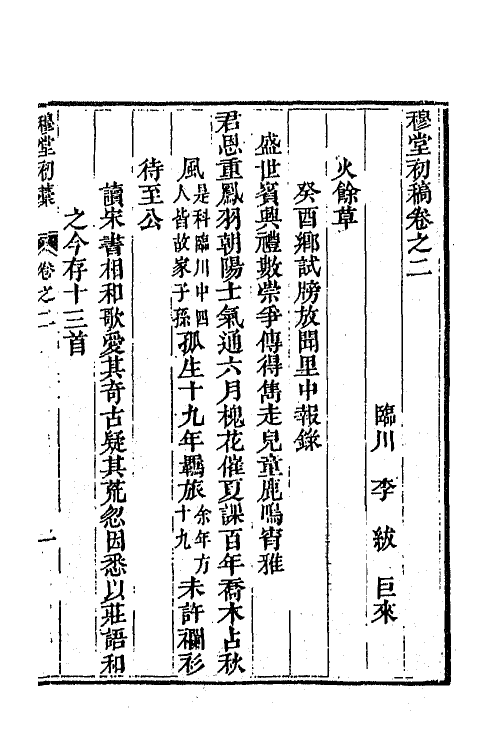 穆堂初稿卷之二
臨川　李　紱　巨來
火餘草
癸酉鄉試牓放聞里中報錄
盛世賓興禮數崇爭傳得雋走兒童鹿鳴宵雅
君恩重鳳羽朝陽士氣通六月槐花催夏課百年喬木占秋
風是科臨川中四人皆故家子孫孤生十九年羇旅余年方十九未許襴衫
待至公
讀宋書相和歌愛其奇古疑其荒忽因悉以莊語和
之今存十三首
穆堂初稾　卷之二　一